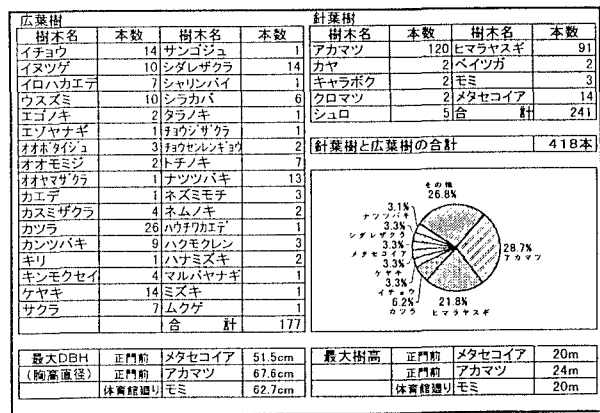 広葉樹
樹木名 本数 樹木名 本数
イチョウ 14 サンゴジュ 1
イヌツゲ 10 シダレザクラ 14
イロハカエデ 7 シャリンバイ 1
ウスズミ 10 シラカバ 6
エゴノキ 2 タラノキ 1
エゾヤナギ 1 チョウジザクラ 1
オオボダイジュ 3 チョウセンレンギョウ 2
オオモミジ 2 トチノキ 7
オオヤマザクラ 1 ナツツバキ 13
カエデ 1 ネズミモチ 3
カスミザクラ 4 ネムノキ 2
カツラ 26 ハウチワカエデ 1
カンツバキ 9 ハクモクレン 3
キリ 1 ハナミズキ 2
キンモクセイ 4 マルバヤナギ 1
ケヤキ 14 ミズキ 1
サクラ 7 ムクゲ 1
合 計 177
針葉樹
樹木名 本数 樹木名 本数
アカマツ 120 ヒマラヤスギ 91
カヤ 2 ベイツガ 2
キャラボク 2 モミ 3
クロマツ 2 メタセコイア 14
シュロ 5 合 計 241
針葉樹と広葉樹の合計 418本
その他
26.8%
3.1%
ナツツバキ
3.3%
シダレザクラ
3.3%
メタセコイア
3.3%
ケヤキ
3.3%
イチョウ
6.2%
カツラ
28.7%
アカマツ
21.8%
ヒマラヤスギ
最大DBH 正門前 メタセコイア 51.5cm
(胸高直径) 正門前 アカマツ 67.6cm
体育館廻り モミ 62.7cm
最大樹高 正門前 メタセコイア 20m
正門前 アカマツ 24m
体育館廻り モミ 20m